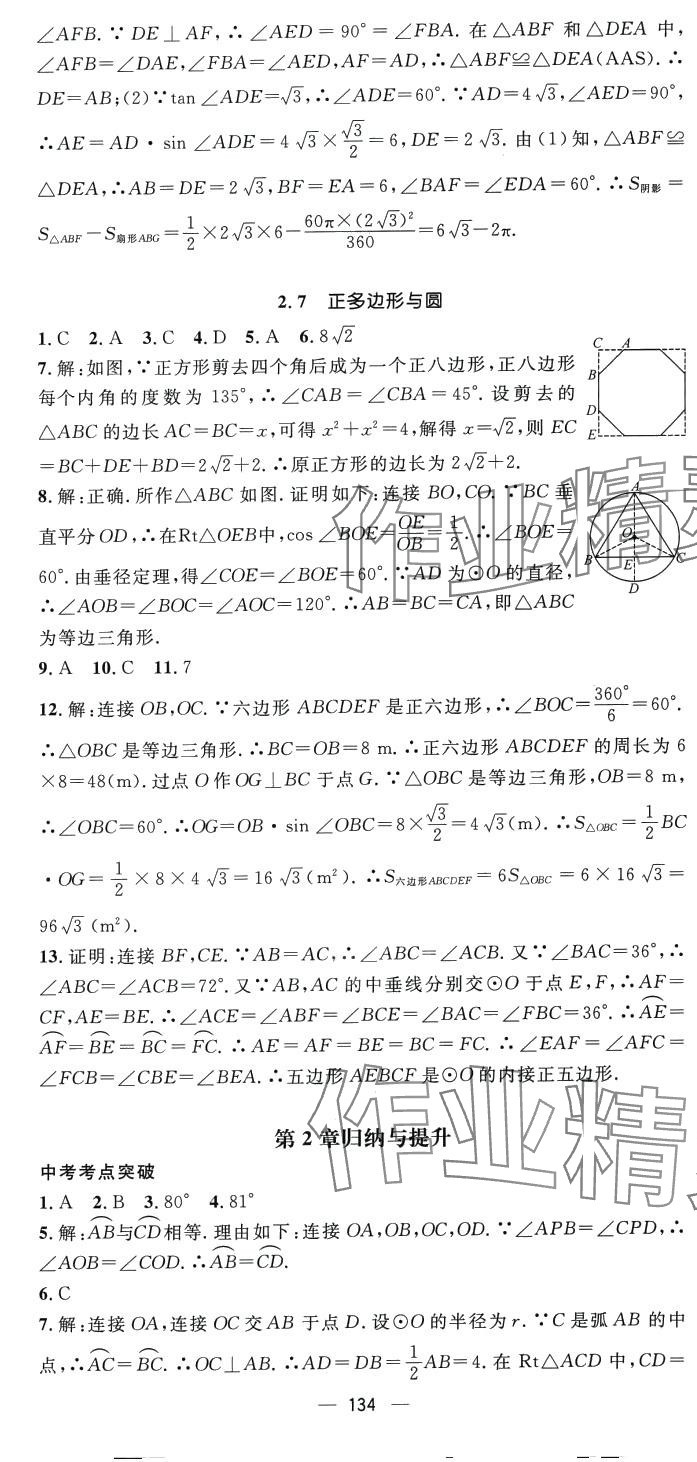 ∠AFB. ∵DE⊥AF,∴∠AED=90°=∠FBA. 在△ABF 和△DEA 中,
∠AFB=∠DAE,∠FBA=∠AED,AF=AD,∴△ABF≌△DEA(AAS). ∴
DE=AB;(2)∵tan ∠ADE=√3,∴∠ADE=60°. ∵AD=4√3,∠AED=90°,
∴AE=AD·sin ∠ADE=4√3×√3/2=6,DE=2√3. 由(1)知,△ABF≌
△DEA,∴AB=DE=2√3,BF=EA=6,∠BAF=∠EDA=60°. ∴S阴影=
S△ABF-S扇形ABG=1/2×2√3×6-60π×(2√3)²/360=6√3-2π.
2.7 正多边形与圆
1. C 2. A 3. C 4. D 5. A 6. 8√2
7. 解:如图,∵正方形剪去四个角后成为一个正八边形,正八边形
每个内角的度数为 135°,∴∠CAB=∠CBA=45°. 设剪去的
△ABC 的边长 AC=BC=x,可得 x²+x²=4,解得 x=√2,则 EC
=BC+DE+BD=2√2+2. ∴原正方形的边长为 2√2+2.
C A
B
D
E
8. 解:正确. 所作△ABC 如图. 证明如下:连接 BO,CO. ∵BC 垂
直平分 OD,∴在Rt△OEB中,cos ∠BOE=OE/OB=1/2. ∴∠BOE=
60°. 由垂径定理,得∠COE=∠BOE=60°. ∵AD 为⊙O 的直径,
∴∠AOB=∠BOC=∠AOC=120°. ∴AB=BC=CA,即△ABC
为等边三角形.
A
O
B E C
D
9. A 10. C 11. 7
12. 解:连接 OB,OC. ∵六边形 ABCDEF 是正六边形,∴∠BOC=360°/6=60°.
∴△OBC 是等边三角形. ∴BC=OB=8 m. ∴正六边形 ABCDEF 的周长为 6
×8=48(m). 过点 O 作 OG⊥BC 于点 G. ∵△OBC 是等边三角形,OB=8 m,
∴∠OBC=60°. ∴OG=OB·sin ∠OBC=8×√3/2=4√3(m). ∴S△OBC=1/2BC
·OG=1/2×8×4√3=16√3(m²). ∴S六边形ABCDEF=6S△OBC=6×16√3=
96√3(m²).
13. 证明:连接 BF,CE. ∵AB=AC,∴∠ABC=∠ACB. 又∵∠BAC=36°,∴
∠ABC=∠ACB=72°. 又∵AB,AC 的中垂线分别交⊙O 于点 E,F,∴AF=
CF,AE=BE. ∴∠ACE=∠ABF=∠BCE=∠BAC=∠FBC=36°. ∴⌒AE=
⌒AF=⌒BE=⌒BC=⌒FC. ∴AE=AF=BE=BC=FC. ∴∠EAF=∠AFC=
∠FCB=∠CBE=∠BEA. ∴五边形 AEBCF 是⊙O 的内接正五边形.
第 2 章归纳与提升
中考考点突破
1. A 2. B 3. 80° 4. 81°
5. 解:⌒AB与⌒CD相等. 理由如下:连接 OA,OB,OC,OD. ∵∠APB=∠CPD,∴
∠AOB=∠COD. ∴⌒AB=⌒CD.
6. C
7. 解:连接 OA,连接 OC 交 AB 于点 D. 设⊙O 的半径为 r. ∵C 是弧 AB 的中
点,∴⌒AC=⌒BC. ∴OC⊥AB. ∴AD=DB=1/2AB=4. 在 Rt△ACD 中,CD=
— 134 —
作业精灵
作业精灵